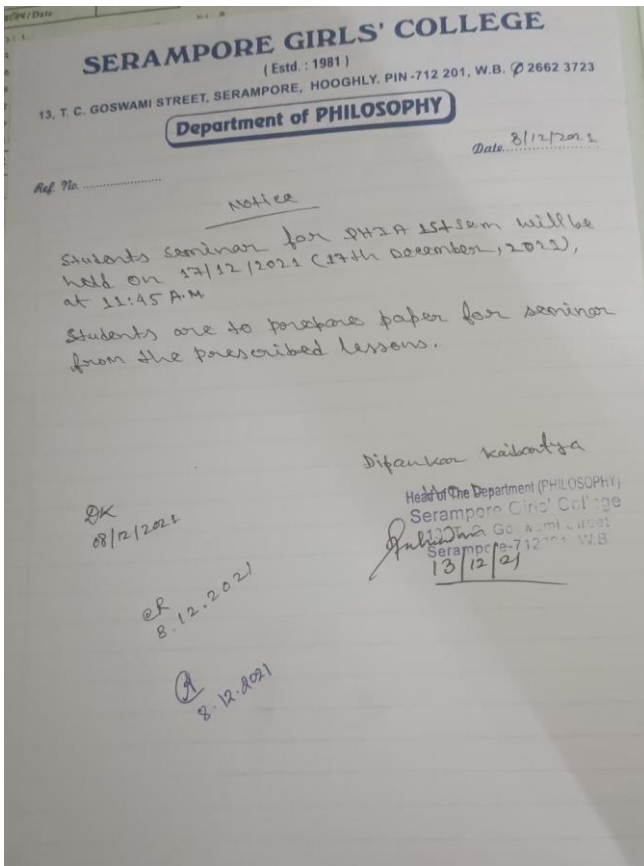 SERAMPORE GIRLS' COLLEGE
( Estd. : 1981 )
13, T. C. GOSWAMI STREET, SERAMPORE, HOOGHLY. PIN -712 201, W.B. ✆ 2662 3723
Department of PHILOSOPHY
Date 8/12/2021
Ref. No.
Notice
Students seminar for PHIA 1st sem will be
held on 17/12/2021 (17th December, 2021),
at 11:45 A.M
Students are to prepare paper for seminar
from the prescribed lessons.
Dipankar Kaibartya
Head of The Department (PHILOSOPHY)
Serampore Girls' College
13, T. C. Goswami Street
Serampore-712201, W.B.
13/12/21
DK
08/12/2021
8.12.2021
8.12.2021